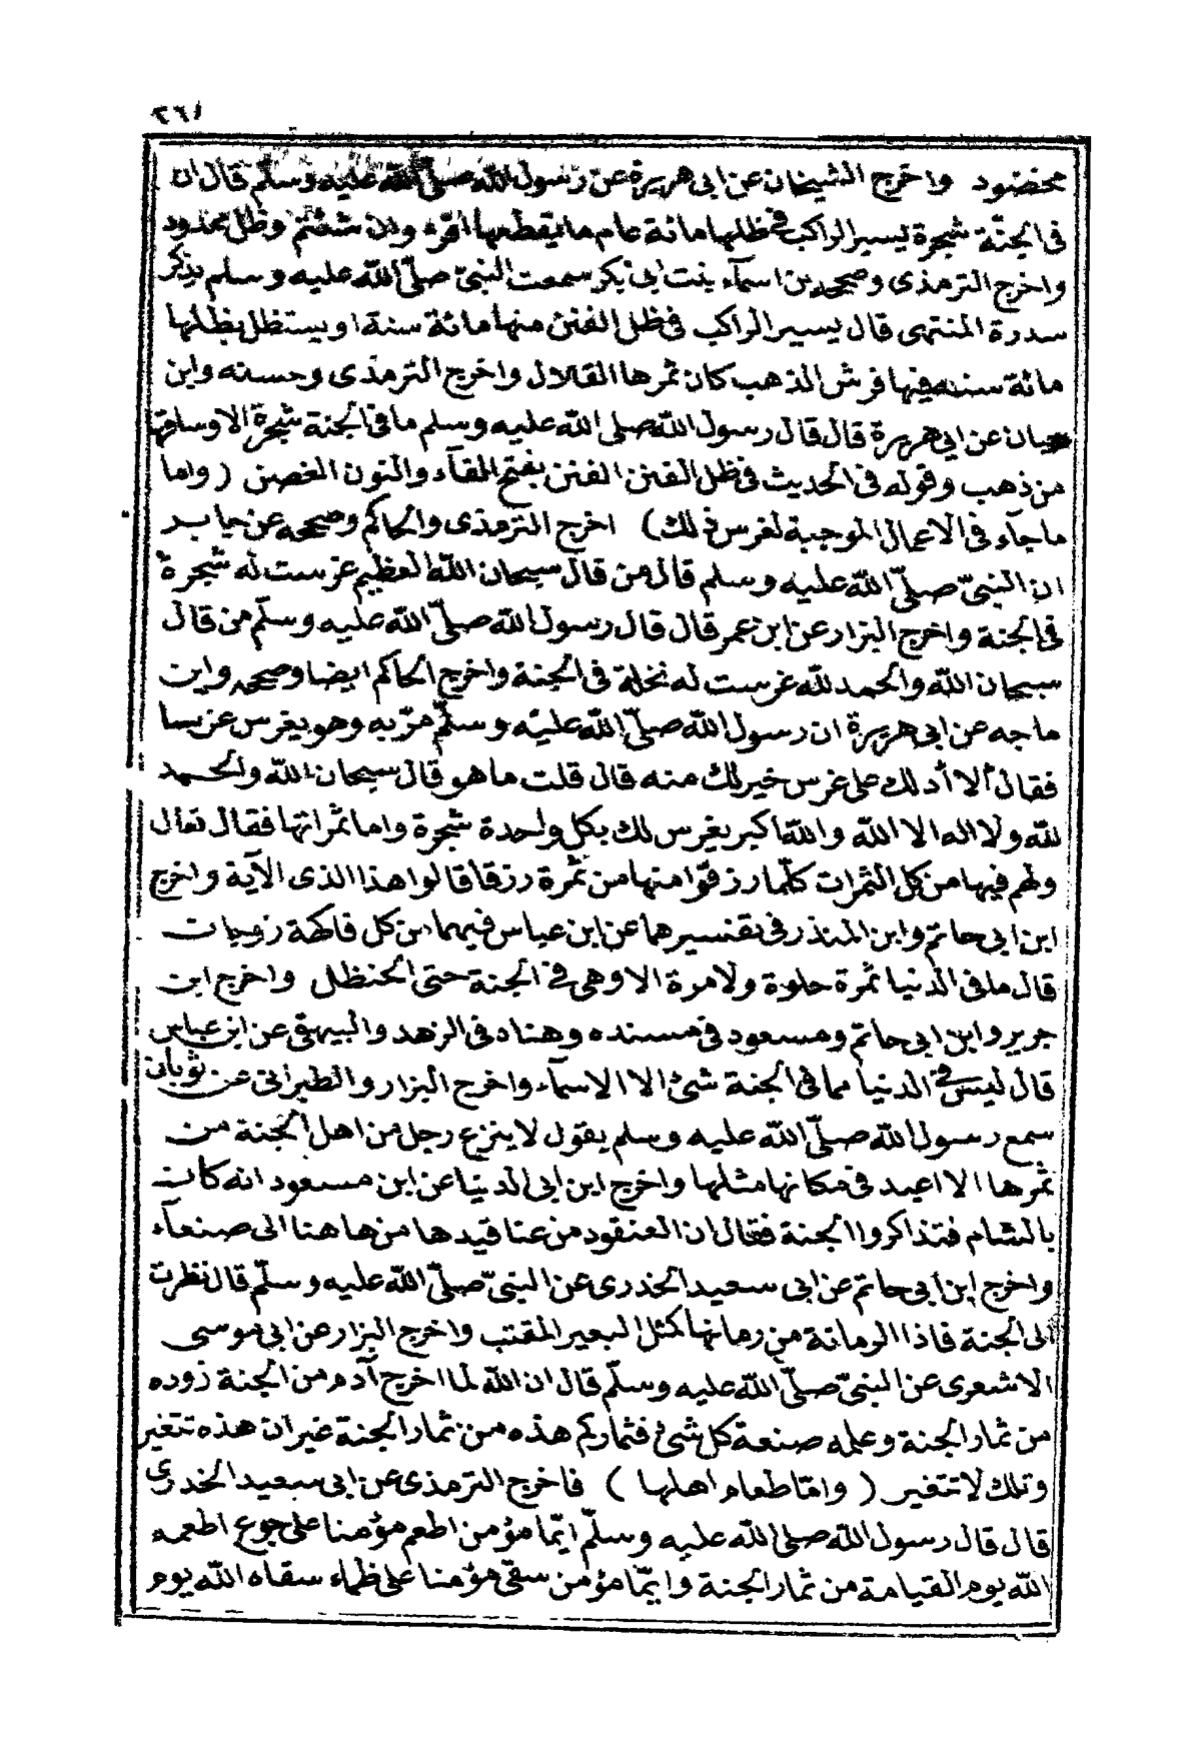 ٢٦١
مخضود واخرج الشيخان عن ابى هريرة عن رسول الله صلى الله عليه وسلم قال ان
فى الجنة شجرة يسير الراكب فى ظلها مائة عام ما يقطعها اقرؤا ان شئتم وظل ممدود
واخرج الترمذى وصححه عن اسمآء بنت ابى بكر سمعت النبىّ صلّى الله عليه وسلم يذكر
سدرة المنتهى قال يسير الراكب فى ظل الفنن منها مائة سنة او يستظل بظلها
مائة سنة فيها فرش الذهب كان ثمرها القلال واخرج الترمذى وحسنه وابن
حبان عن ابى هريرة قال قال رسول الله صلى الله عليه وسلم ما فى الجنة شجرة الا وساقها
من ذهب وقوله فى الحديث فى ظل الفنن الفنن بفتح الفآء والنون الغصن (واما
ما جآء فى الاعمال الموجبة لغرس ذلك) اخرج الترمذى والحاكم وصححه عن جابر
ان النبىّ صلّى الله عليه وسلم قال من قال سبحان الله العظيم غرست له شجرة
فى الجنة واخرج البزار عن ابن عمر قال قال رسول الله صلّى الله عليه وسلّم من قال
سبحان الله والحمد لله غرست له نخلة فى الجنة واخرج الحاكم ايضا وصححه وابن
ماجه عن ابى هريرة ان رسول الله صلّى الله عليه وسلّم مرّ به وهو يغرس غرسا
فقال ألا أدلك على غرس خير لك منه قال قلت ما هو قال سبحان الله والحمد
لله ولا اله الا الله والله اكبر يغرس لك بكل واحدة شجرة واما ثمراتها فقال تعالى
ولهم فيها من كل الثمرات كلّما رزقوا منها من ثمرة رزقا قالوا هذا الذى الآية واخرج
ابن ابى حاتم وابن المنذر فى تفسيرهما عن ابن عباس فيهما من كل فاكهة زوجان
قال ما فى الدنيا ثمرة حلوة ولا مرة الا وهى فى الجنة حتى الحنظل واخرج ابن
جرير وابن ابى حاتم ومسعود فى مسنده وهناد فى الزهد والبيهقى عن ابن عباس
قال ليس فى الدنيا مما فى الجنة شئ الا الاسمآء واخرج البزار والطبرانى عن ثوبان
سمع رسول الله صلّى الله عليه وسلم يقول لا ينزع رجل من اهل الجنة من
ثمرها الا اعيد فى مكانها مثلها واخرج ابن ابى الدنيا عن ابن مسعود انه كان
بالشام فتذاكروا الجنة فقال ان العنقود من عناقيدها من هاهنا الى صنعآء
واخرج ابن أبى حاتم عن ابى سعيد الخدرى عن النبىّ صلّى الله عليه وسلّم قال نظرت
الى الجنة فاذا الرمانة من رمانها كمثل البعير المقتب واخرج البزار عن ابى موسى
الاشعرى عن النبىّ صلّى الله عليه وسلّم قال ان الله لما اخرج آدم من الجنة زوده
من ثمار الجنة وعلمه صنعة كل شئ فثماركم هذه من ثمار الجنة غير ان هذه تتغير
وتلك لا تتغير (وامّا طعام اهلها) فاخرج الترمذى عن ابى سعيد الخدرى
قال قال رسول الله صلى الله عليه وسلّم ايّما مؤمن اطعم مؤمنا على جوع اطعمه
الله يوم القيامة من ثمار الجنة وايّما مؤمن سقى مؤمنا على ظمآء سقاه الله يوم